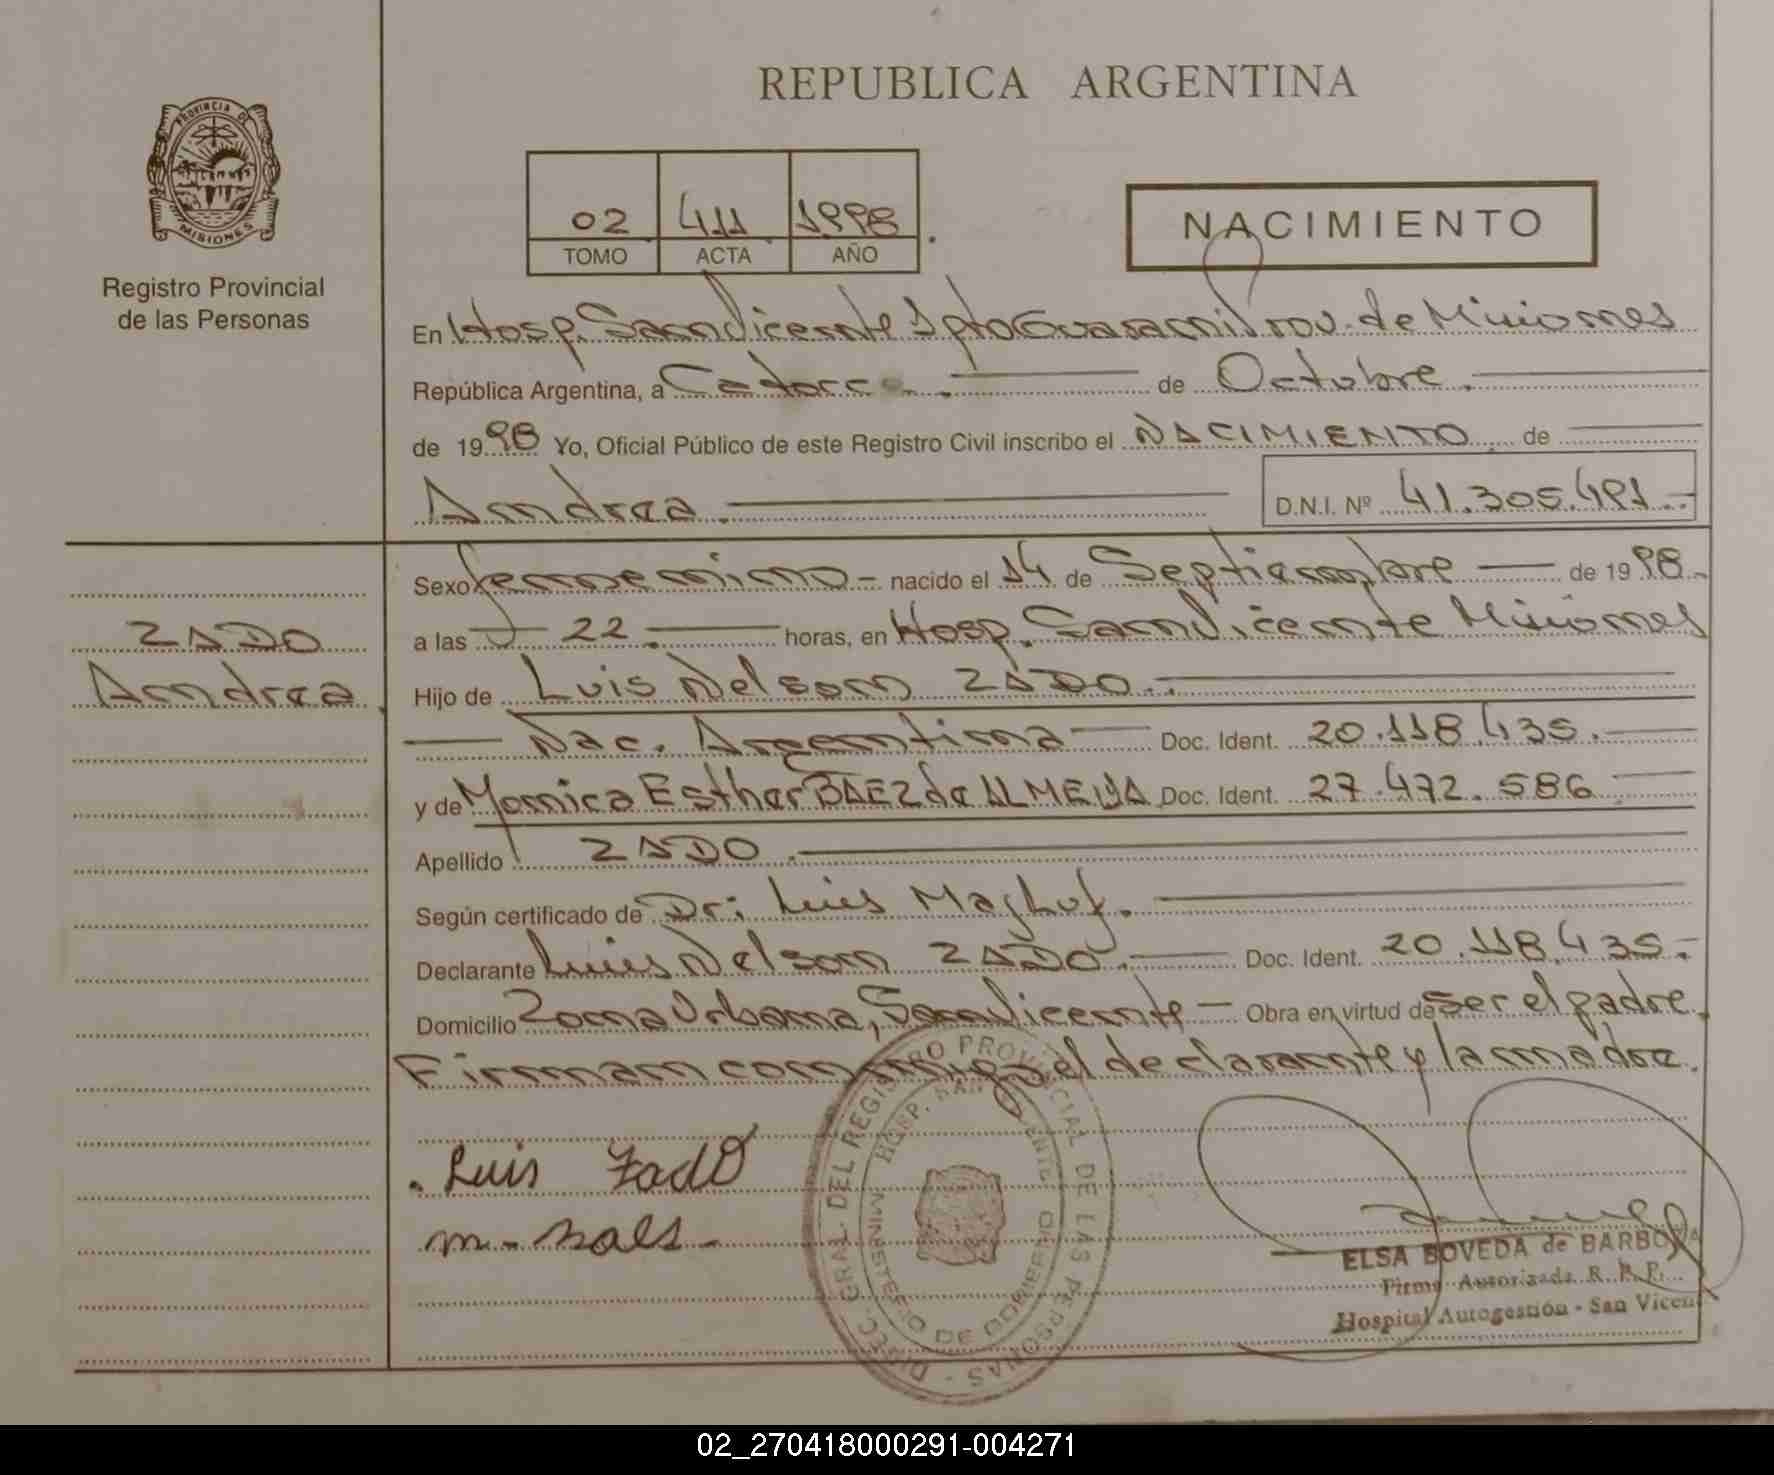 REPUBLICA ARGENTINA
PROVINCIA DE
MISIONES
Registro Provincial
de las Personas
02 411 1998
TOMO ACTA AÑO
NACIMIENTO
En Hosp. San Vicente Dpto Guaraní Prov. de Misiones
República Argentina, a Catorce. de Octubre.
de 1998 Yo, Oficial Público de este Registro Civil inscribo el NACIMIENTO de
Andrea. D.N.I. Nº 41.305.491.-
Sexo femenino - nacido el 14 de Septiembre de 1998.
a las 22. horas, en Hosp. San Vicente Misiones
ZADO
Andrea.
Hijo de Luis Nelson ZADO.
Nac. Argentina Doc. Ident. 20.118.435.
y de Monica Esther BAEZ de ALMEIDA Doc. Ident. 27.472.586
Apellido ZADO.
Según certificado de Dr: Luis
Declarante Luis Nelson ZADO. Doc. Ident. 20.118.435.-
Domicilio Zona Urbana, San Vicente - Obra en virtud de ser el padre.
Firman conmigo el declarante y la madre.
. Luis Zado
DIREC. GRAL DEL REGISTRO PROVINCIAL DE LAS PERSONAS -
HOSP. SAN VICENTE
MINISTERIO DE GOBIERNO
ELSA BOVEDA de BARBOZA
Firma Autorizada R. P. P.
Hospital Autogestión - San Vicen
02_270418000291-004271